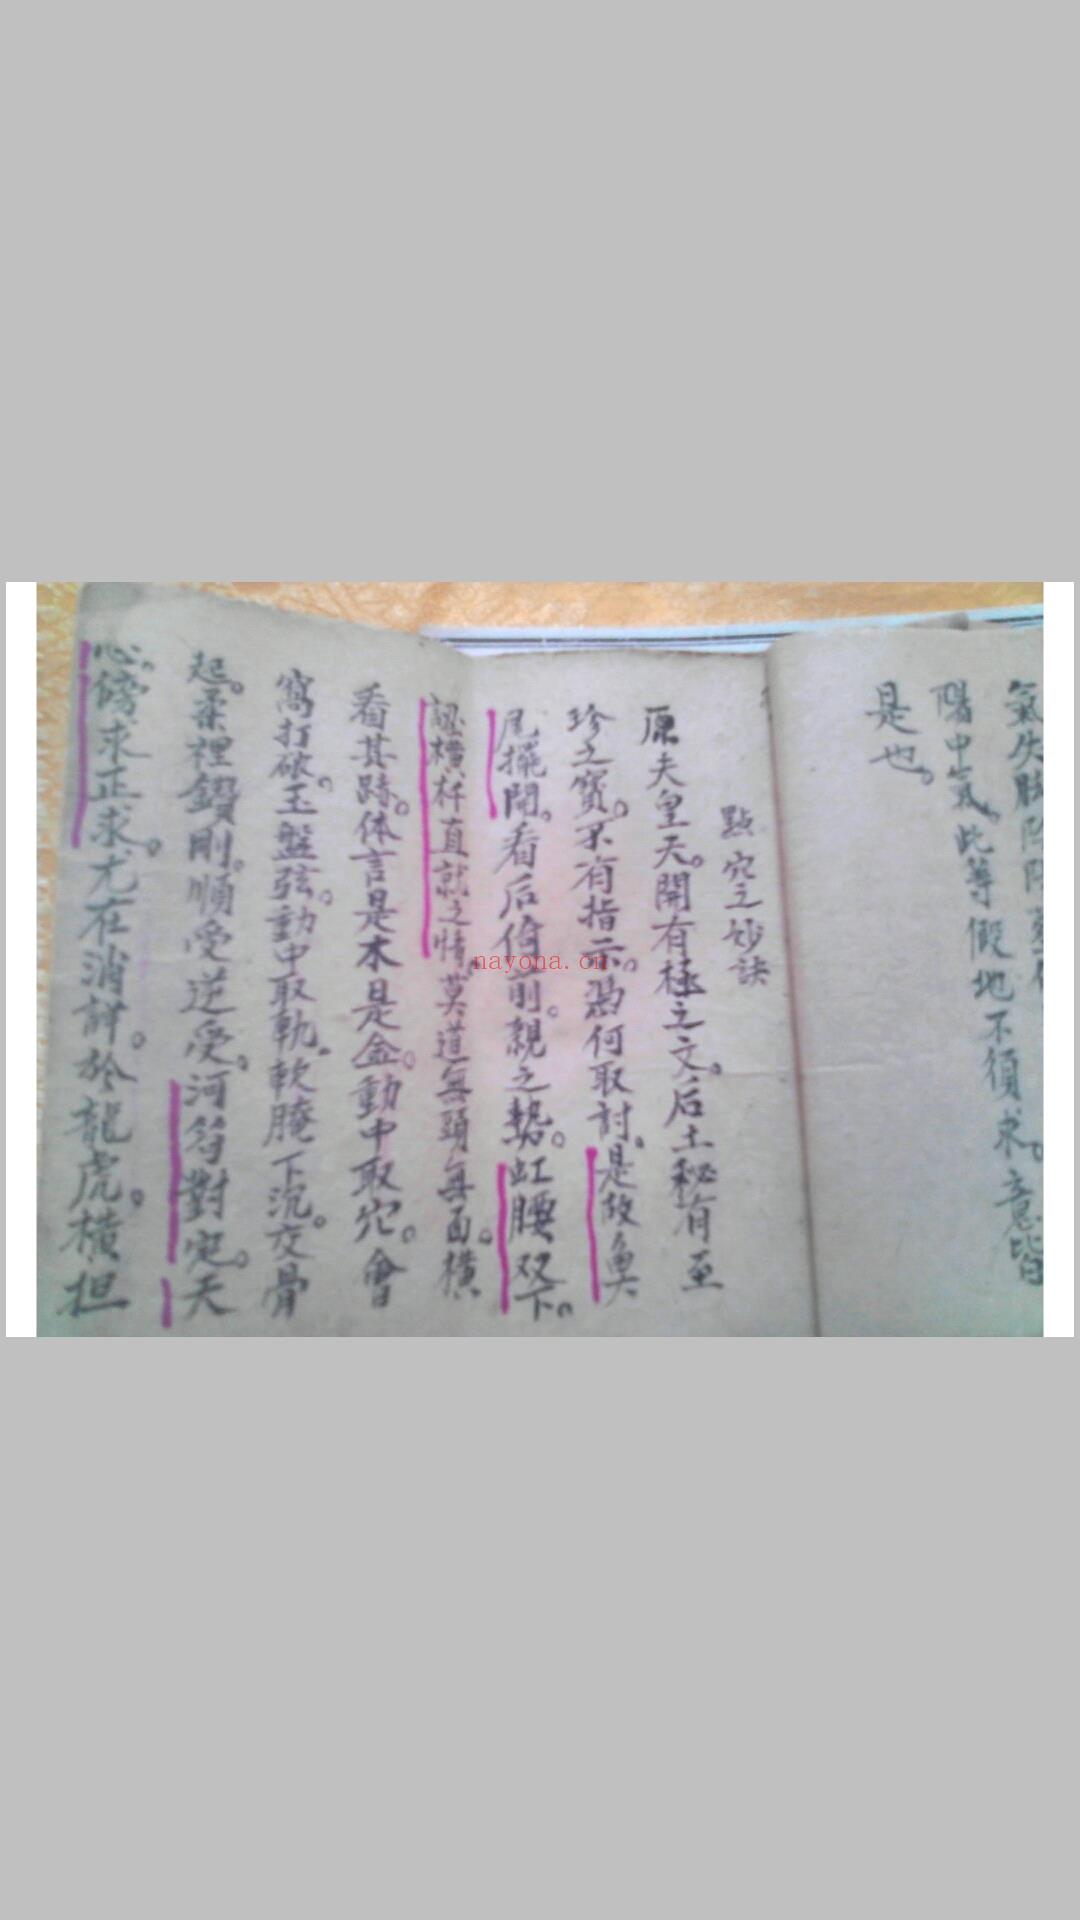 氣失
陽中氣。此等假地不須求。意皆
是也。
點穴之妙訣
原夫皇天。開有極之文。后土秘有至
珍之寶。不有指示。憑何取討。是故魚
尾擺開。看后倚前。親之勢。虹腰双下。
認橫杆直就之情莫道無頭無面。橫
看其跡。体言是木是金。動中取穴。會
窩打破。玉盤弦。動中取軌。軟腌下沉。交骨
起。柔裡鑽剛。順受逆受。河符對定。天
心。傍求正求。尤在消詳。於龍虎。橫担
nayona.cn